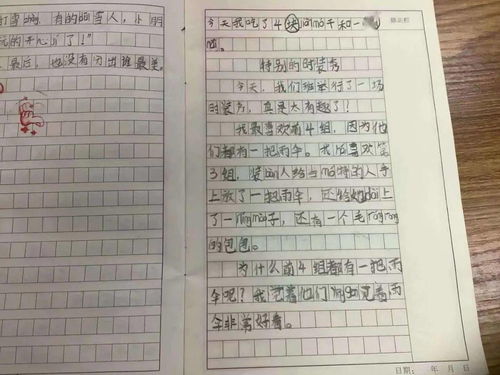 打雪zhàng，有的duī雪人，小朋
玩的开心jí了！"
最后，也没有分出班最美。
今天我吃了4块
特别的时装秀
今天，我们班举行了一场
时装秀，真是太有趣了！
我最喜欢前4组，因为他
们都有一把雨伞。我也喜欢第
3组，装bàn人给当mó特的人手
上放了一把雨伞，还给她dài上
了一dǐngmào子，还有一个毛róngrong
的包包。
为什么前4组都有一把雨
伞呢？我觉着他们觉着雨
伞非常好看。
日期： 年 月 日